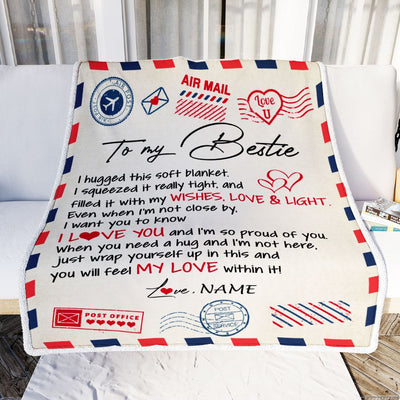 AIR MAIL
AIR POST
Love
U
To my Bestie
I hugged this soft blanket.
I squeezed it really tight, and
filled it with my WISHES, LOVE & LIGHT.
Even when I'm not close by.
I want you to know
I L❤VE YOU and I'm so proud of you.
When you need a hug and I'm not here,
just wrap yourself up in this and
you will feel MY LOVE within it!
Love, NAME
POST OFFICE
POST
SERVICE